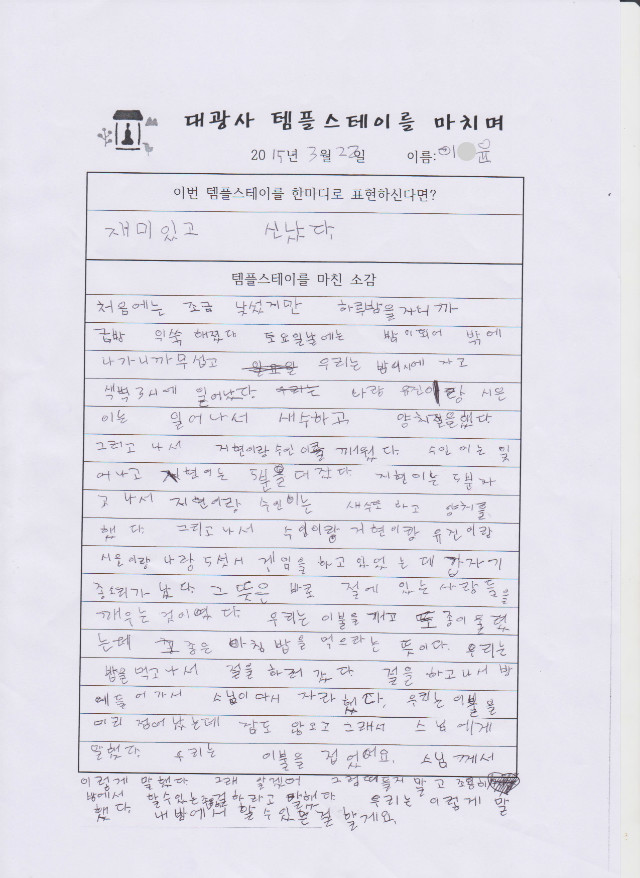 대광사 템플스테이를 마치며
2015년 3월 22일 이름: 이 윤
이번 템플스테이를 한미디로 표현하신다면?
재미있고 신났다.
템플스테이를 마친 소감
처음에는 조금 낯섰지만 하루밤을 자니까
금방 익쑥해졌다 토요일날에는 밤 밖에
나가니까 무섭고 우리는 밤 시에 자고
색벽 3시에 일어났다 나랑 유진이랑 시온
이는 일어나서 세수하고 양치를 했다
그리고 나서 지현이랑 수인이를 깨웠다. 수인이는 일
어나고 지현이는 5분을 더 잤다. 지현이는 5분 자
고 나서 지현이랑 수인이는 세수도 하고 양치를
했다. 그리고 나서 수인이랑 지현이랑 유진이랑
시온이랑 나랑 5섯서 겐임을 하고 있었는데 갑자기
종소리가 났다. 그 뜻은 바로 절에 있는 사람들을
깨우는 것이였다. 우리는 이불을 개고 또 종이 울렸
는데 그 종은 아침밥을 먹으라는 뜻이다. 우리는
밥을 먹고 나서 절을 하러 갔다. 절을 하고 나서 방
에 들어가서 스님이 다시 자라 했다. 우리는 이불을
미리 접어났는데 잠도 안오고 그래서 스님에게
말했다. 우리는 이불을 접었어요. 스님께서
이렇게 말했다. 그래 알겠어 그럼 떠들지 말고 조용히
방에서 할수있는 걸 하라고 말했다. 우리는 이렇게 말
했다. 내 방에서 할 수 있는 걸 할게요.